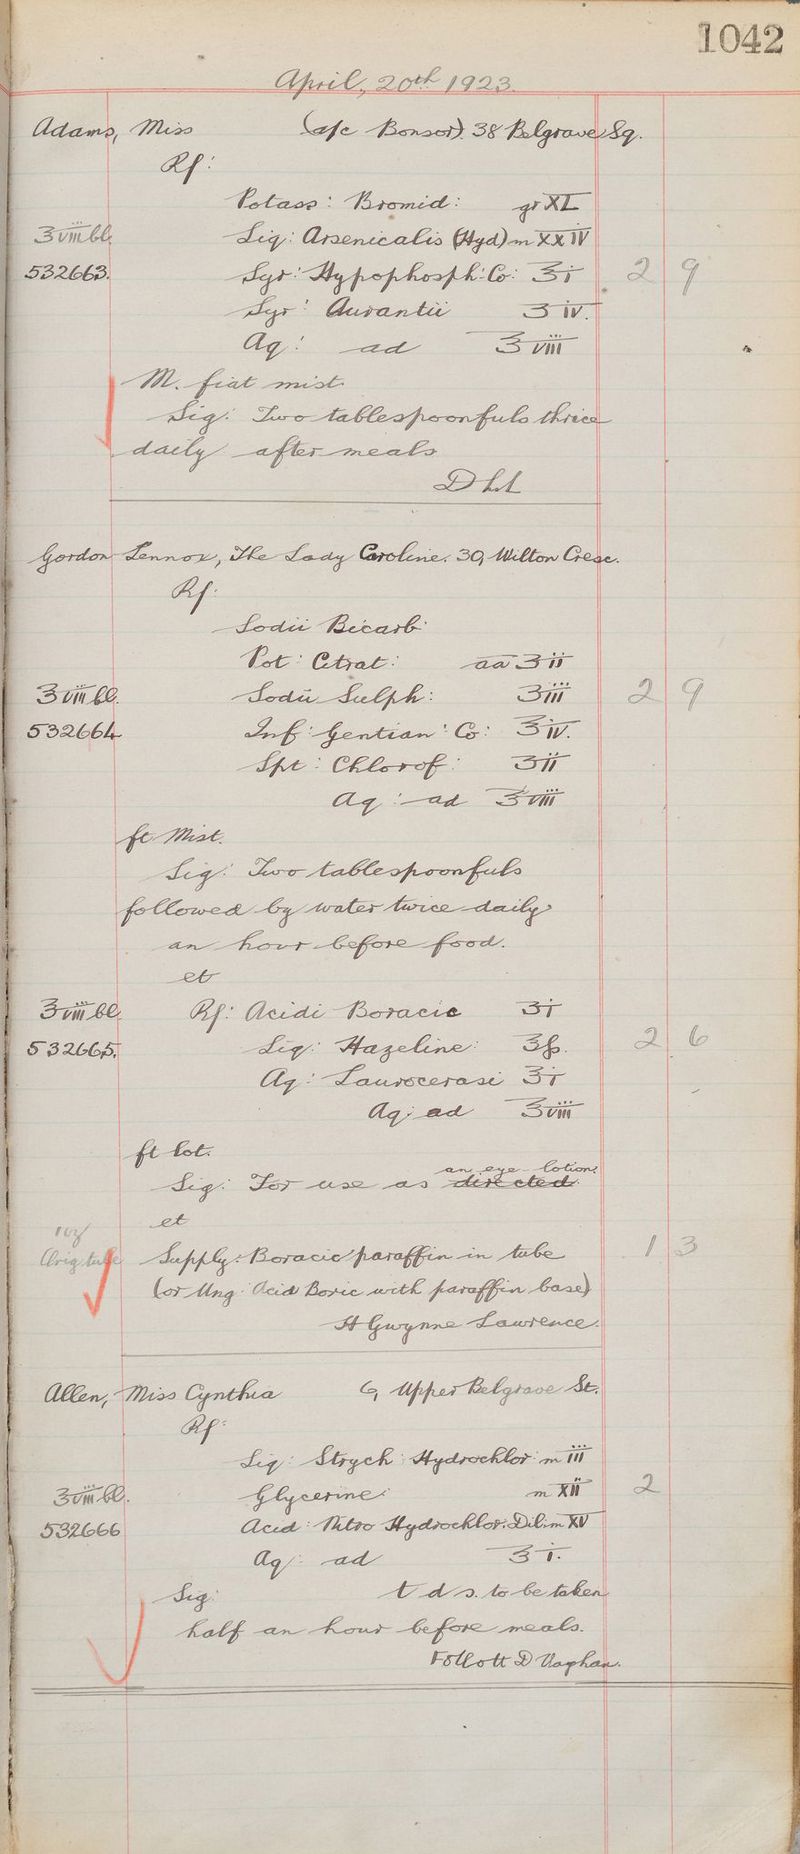 1042
April, 20th 1923.
Adams, Miss (a/c Bonsor). 38 Belgrave Sq.
Rf:
Potass: Bromid: gr XL
℥viii bl. Liq: Arsenicalis (Hyd) m XXIV
532663. Syr: Hypophosph: Co: ℥i 2 9
Syr: Aurantii ʒiv.
Aq: ad ℥viii
M. fiat mist.
Sig: Two tablespoonfuls thrice
daily after meals
Gordon Lennox, The Lady Caroline. 30, Wilton Cresc.
Rf:
Sodii Bicarb:
Pot: Citrat: aa ʒii
℥viii bl. Sodii Sulph: ʒiii 2 9
532664 Inf: Gentian: Co: ℥iv.
Spt: Chlorof: ʒii
Aq: ad ℥viii
ft Mist.
Sig: Two tablespoonfuls
followed by water twice daily
an hour before food.
et
℥viii bl. Rf: Acidi Boracic ʒi
532665. Liq: Hazeline: ℥ß. 2 6
Aq: Laurocerasi ℥i
Aq: ad ℥viii
ft lot.
an eye lotion.
Sig: For use as directed.
et
1oz
Orig tube Supply: Boracic paraffin in tube 1 3
(or Ung: Acid Boric with paraffin base)
H Gwynne Lawrence.
Allen, Miss Cynthia 6, Upper Belgrave St.
Rf:
Liq: Strych: Hydrochlor: m iii
℥viii bl. Glycerine: m XII 2
532666 Acid: Nitro Hydrochlor: Dil: m XV
Aq: ad ℥i.
Sig: t d s. to be taken
half an hour before meals.